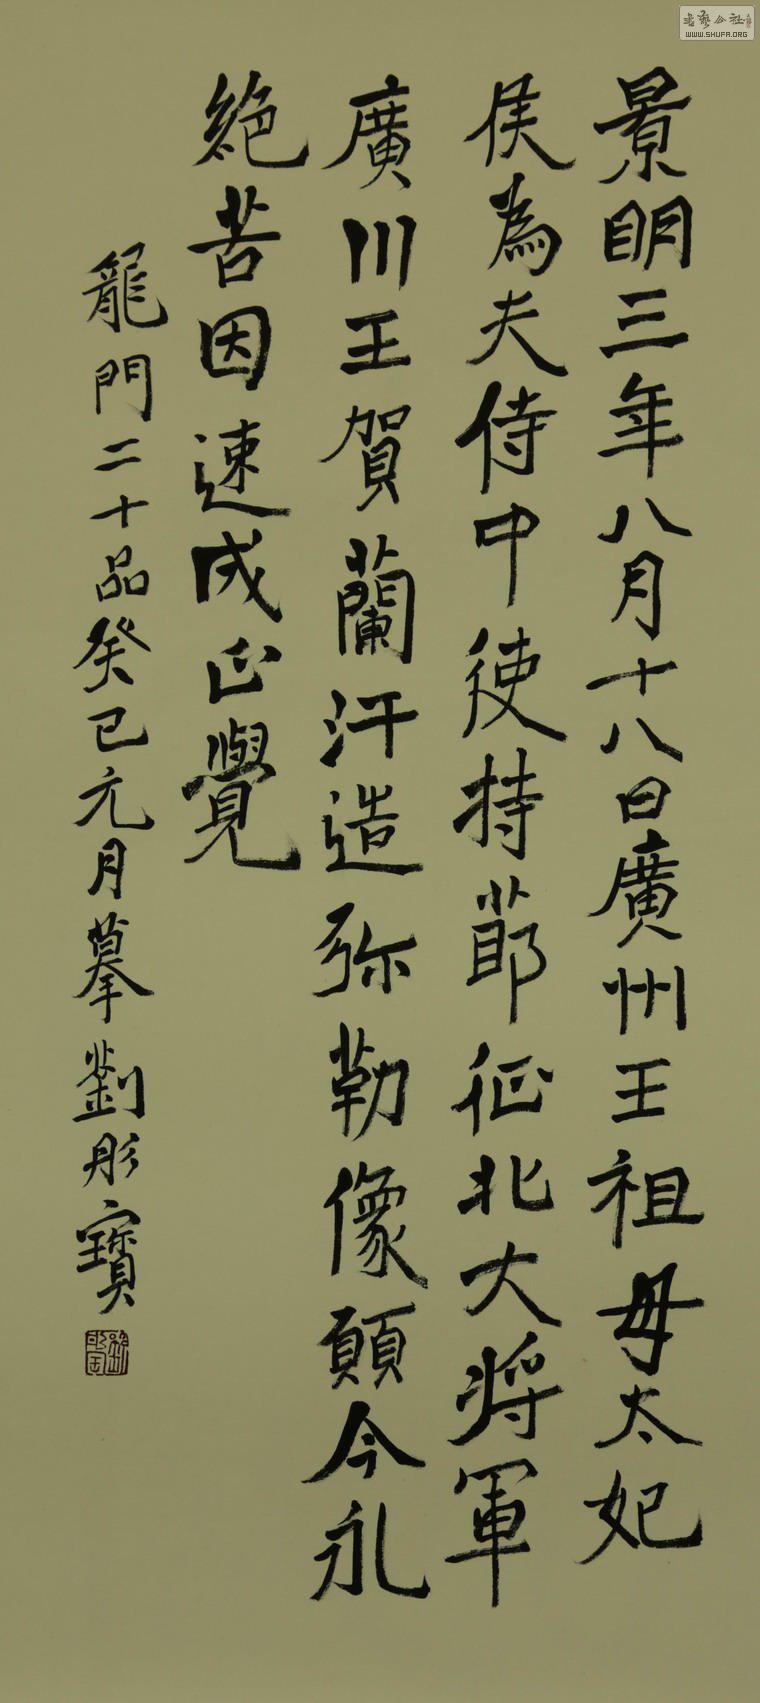 景明三年八月十八日廣州王祖母太妃
侯為夫侍中使持節征北大將軍
廣川王賀蘭汗造弥勒像願今永
絕苦因速成正覺
龍門二十品癸巳元月摹劉彤寶
書藝公社
WWW.SHUFA.ORG